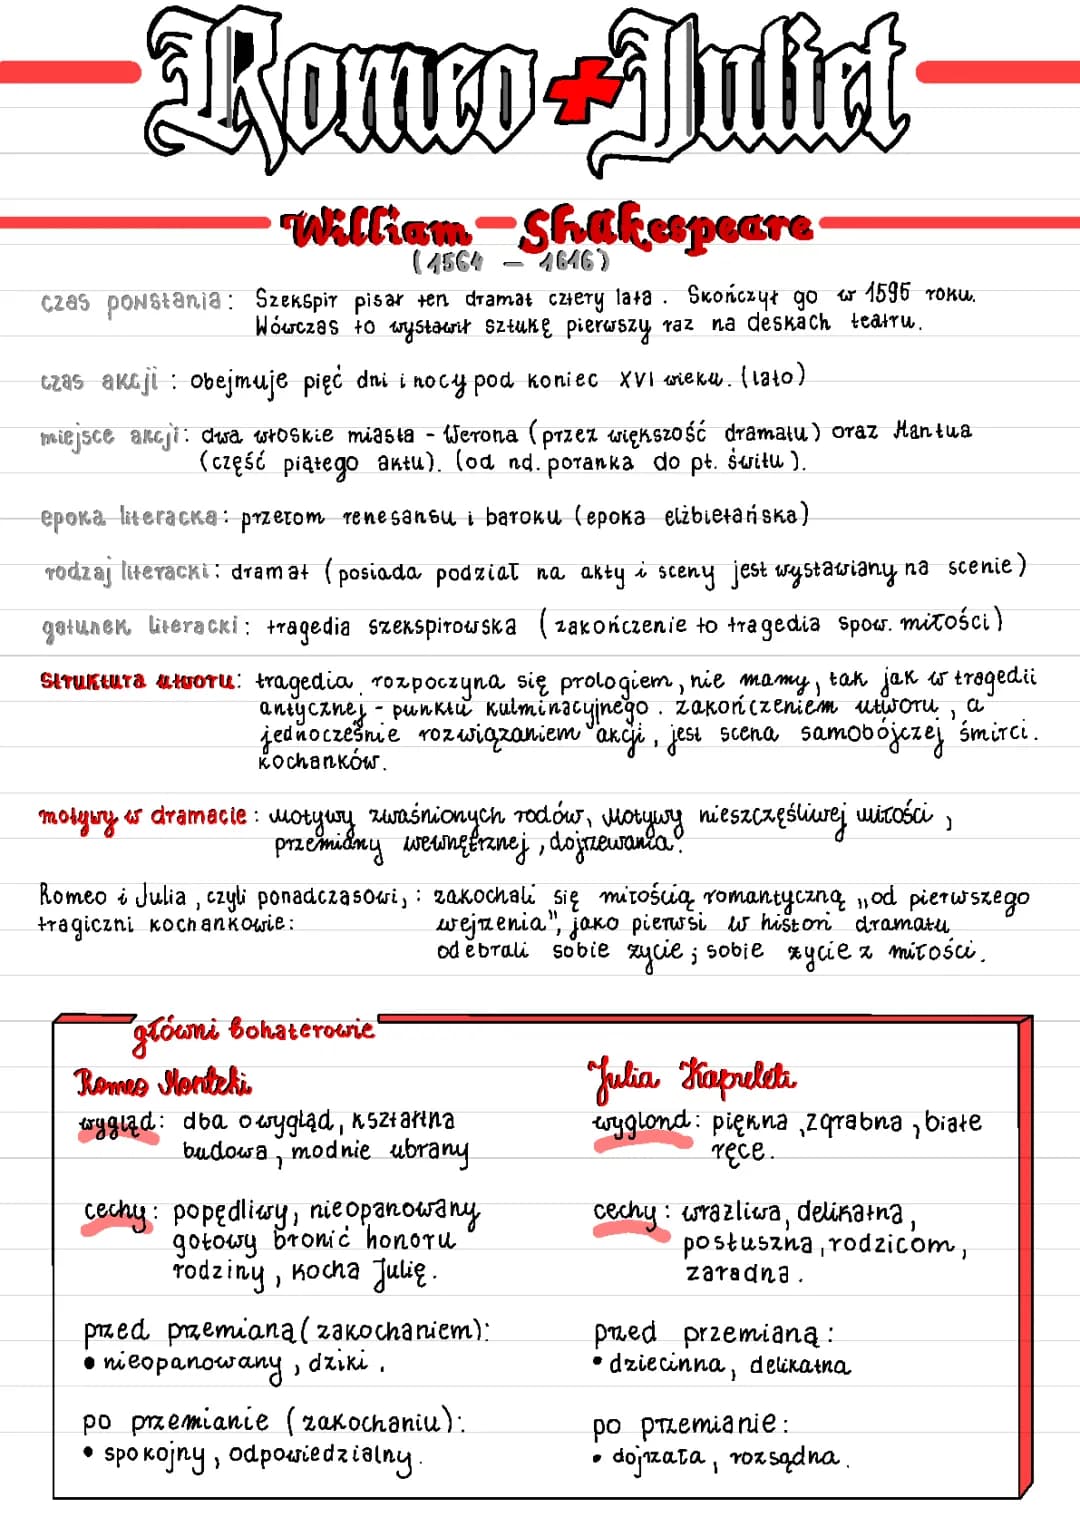 Romeo + Juliet
William Shakespeare
(1564 – 1616)
czas powstania: Szekspir pisał ten dramat cztery lata. Skończył go w 1595 roku.
Wówczas to wystawił sztukę pierwszy raz na deskach teatru.
czas akcji: obejmuje pięć dni i nocy pod koniec XVI wieku. (lato)
miejsce akcji: dwa włoskie miasta - Werona (przez większość dramatu) oraz Mantua
(część piątego aktu). (od nd. poranka do pt. świtu).
epoka literacka: przełom renesansu i baroku (epoka elżbietańska)
rodzaj literacki: dramat (posiada podział na akty i sceny jest wystawiany na scenie)
gatunek literacki: tragedia szekspirowska (zakończenie to tragedia spow. miłości)
Struktura utworu: tragedia rozpoczyna się prologiem, nie mamy, tak jak w tragedii
antycznej - punktu kulminacyjnego. zakończeniem utworu, a
jednocześnie rozwiązaniem akcji, jest scena samobójczej śmirci.
kochanków.
motywy w dramacie: Motywy zwaśnionych rodów, Motywy nieszczęśliwej miłości,
przemiany wewnętrznej, dojrzewania.
Romeo i Julia, czyli ponadczasowi, : zakochali się miłością romantyczną „od pierwszego
tragiczni kochankowie: wejrzenia", jako pierwsi w histori dramatu
odebrali sobie życie; sobie życie z miłości.
główni bohaterowie
Romeo Monteki Julia Kapuleti
wygląd: dba o wygląd, kształtna wyglond: piękna, zgrabna, białe
budowa, modnie ubrany ręce.
cechy: popędliwy, nieopanowany cechy: wrażliwa, delikatna,
gotowy bronić honoru posłuszna, rodzicom,
rodziny, kocha Julię. zaradna.
przed przemianą (zakochaniem): przed przemianą:
• nieopanowany, dziki. • dziecinna, delikatna
po przemianie (zakochaniu): po przemianie:
• spokojny, odpowiedzialny. • dojrzała, rozsądna.